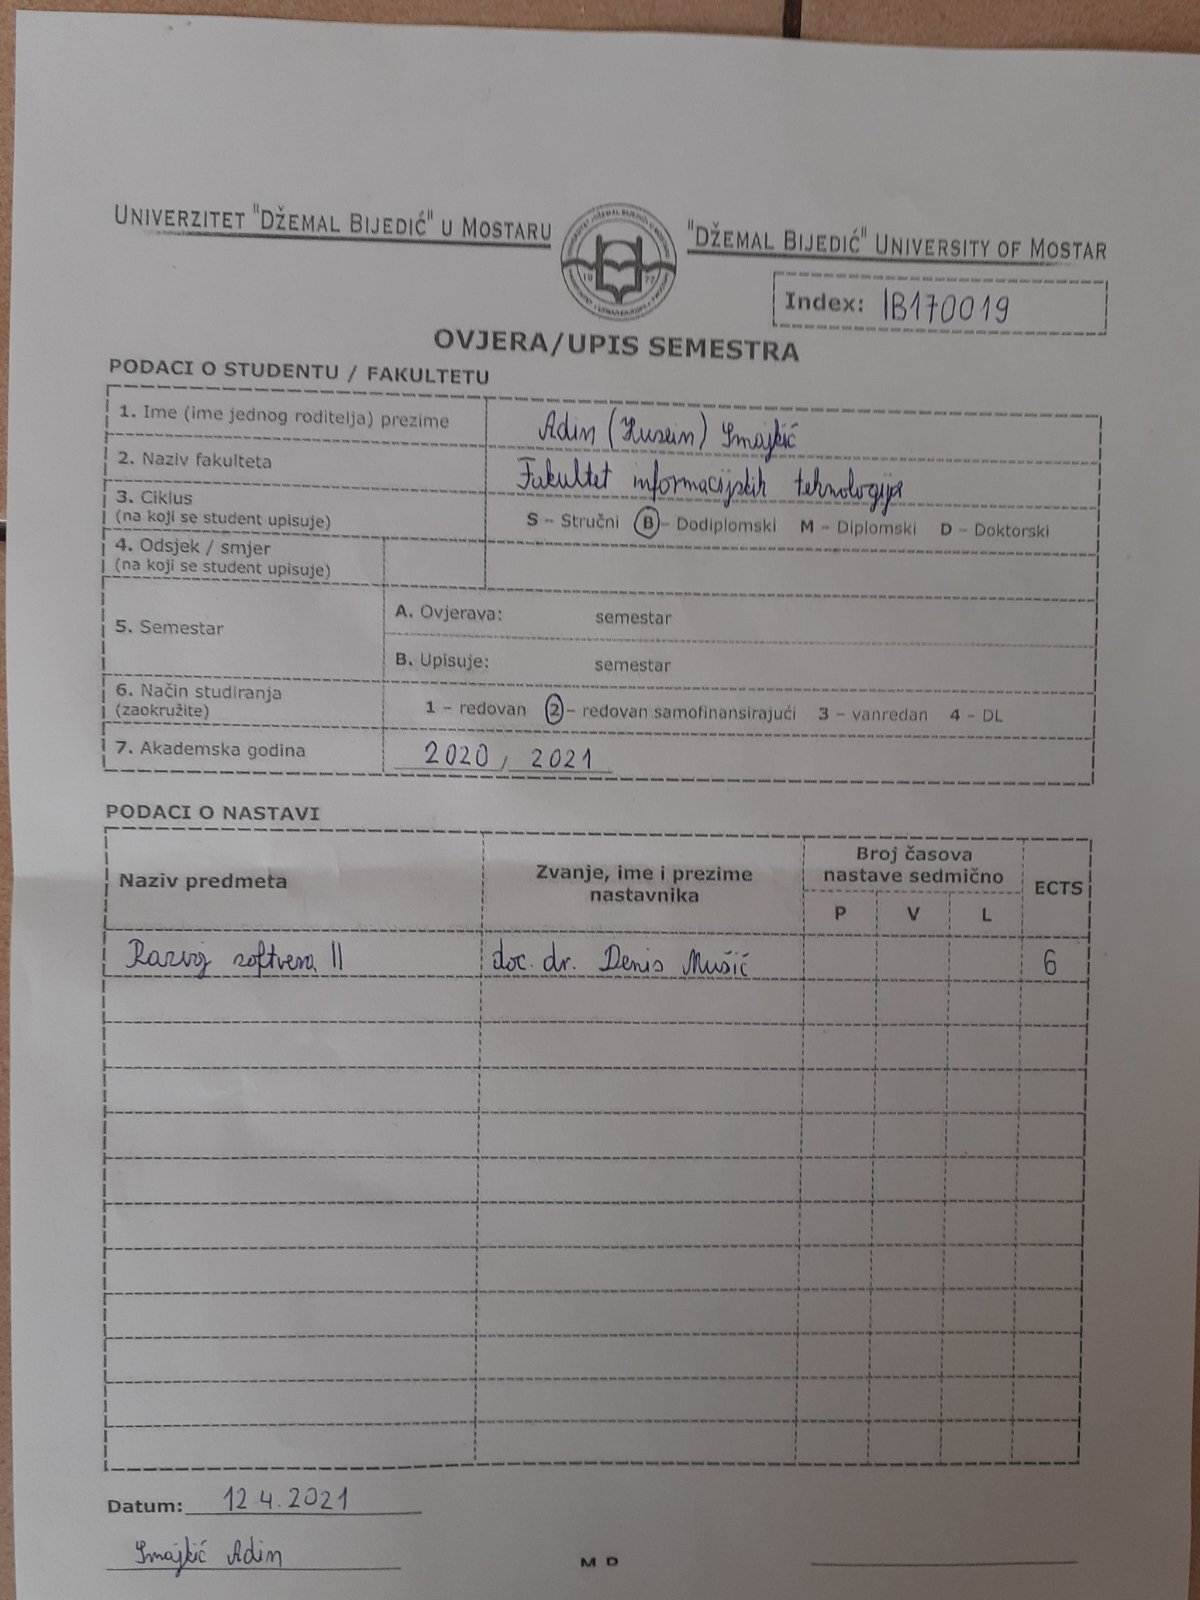 UNIVERZITET "DŽEMAL BIJEDIĆ" U MOSTARU
"DŽEMAL BIJEDIĆ" UNIVERSITY OF MOSTAR
19 77
Index: IB170019
OVJERA/UPIS SEMESTRA
PODACI O STUDENTU / FAKULTETU
1. Ime (ime jednog roditelja) prezime Adin (Husein) Smajkić
2. Naziv fakulteta Fakultet informacijskih tehnologija
3. Ciklus
(na koji se student upisuje) S - Stručni B - Dodiplomski M - Diplomski D - Doktorski
4. Odsjek / smjer
(na koji se student upisuje)
5. Semestar
A. Ovjerava: semestar
B. Upisuje: semestar
6. Način studiranja
(zaokružite) 1 - redovan 2 - redovan samofinansirajući 3 - vanredan 4 - DL
7. Akademska godina 2020 / 2021
PODACI O NASTAVI
Naziv predmeta
Zvanje, ime i prezime
nastavnika
Broj časova
nastave sedmično
P V L
ECTS
Razvoj softvera II doc. dr. Denis Mušić 6
Datum: 12.4.2021
Smajkić Adin
M D